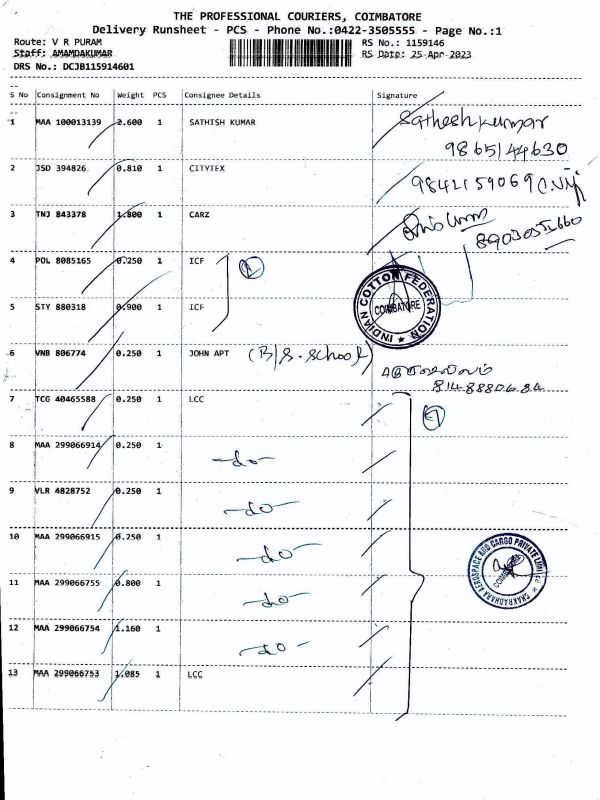 THE PROFESSIONAL COURIERS, COIMBATORE
Delivery Runsheet - PCS - Phone No.:0422-3505555 - Page No.:1
Route: V R PURAM
RS No.: 1159146
Staff: AMAMDAKUMAR
RS Date: 25-Apr-2023
DRS No.: DCJB115914601
S No Consignment No Weight PCS Consignee Details Signature
1 MAA 100013139 2.600 1 SATHISH KUMAR Satheshkumar
9865144630
2 JSD 394826 0.810 1 CITYTEX 9842159069
3 TNJ 843378 1.800 1 CARZ
4 POL 8085165 0.250 1 ICF 2
INDIAN COTTON FEDERATION
COIMBATORE
5 STY 880318 0.900 1 ICF
6 VNB 806774 0.250 1 JOHN APT (B/S. School)
8148880684
7 TCG 40465588 0.250 1 LCC 7
8 MAA 299066914 0.250 1 -do-
9 VLR 4828752 0.250 1 -do-
10 MAA 299066915 0.250 1 -do-
CHAKRADHARA AEROSPACE AND CARGO PRIVATE LIMITED
11 MAA 299066755 0.800 1 -do-
12 MAA 299066754 1.160 1 -do-
13 MAA 299066753 1.085 1 LCC